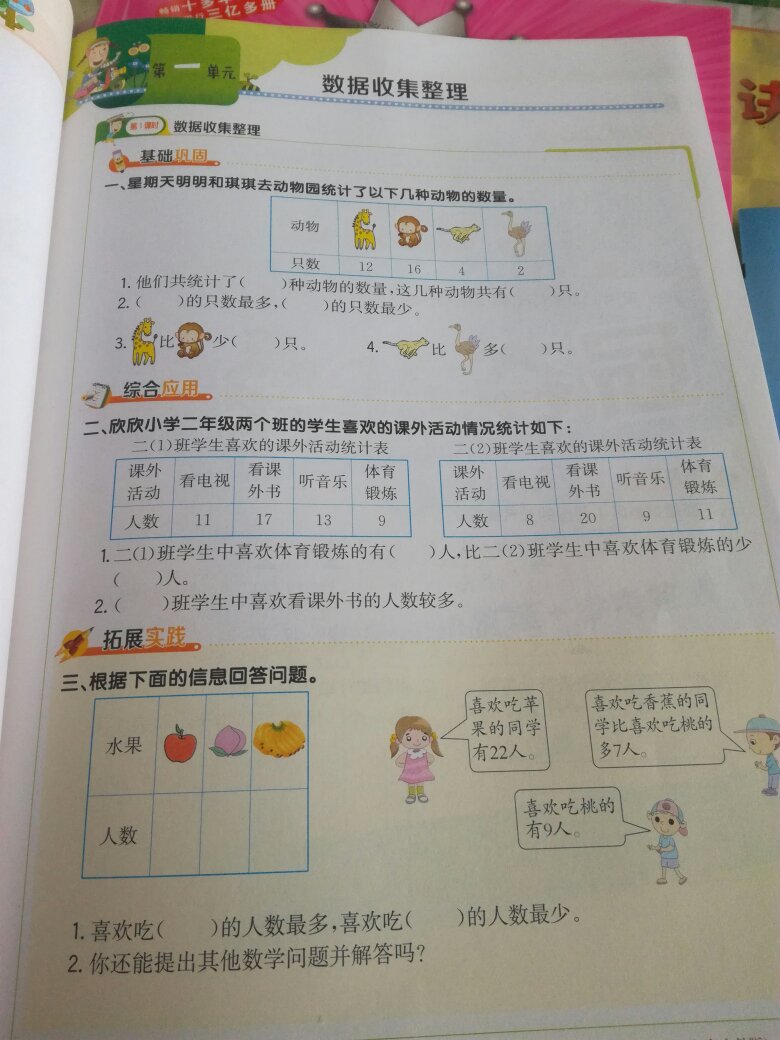 畅销十多年
三亿多册
诀
第一单元
数据收集整理
第1课时 数据收集整理
基础巩固
一、星期天明明和琪琪去动物园统计了以下几种动物的数量。
动物
只数 12 16 4 2
1. 他们共统计了( )种动物的数量,这几种动物共有( )只。
2. ( )的只数最多,( )的只数最少。
3. 比 少( )只。 4. 比 多( )只。
综合应用
二、欣欣小学二年级两个班的学生喜欢的课外活动情况统计如下:
二(1)班学生喜欢的课外活动统计表
课外活动 看电视 看课外书 听音乐 体育锻炼
人数 11 17 13 9
二(2)班学生喜欢的课外活动统计表
课外活动 看电视 看课外书 听音乐 体育锻炼
人数 8 20 9 11
1. 二(1)班学生中喜欢体育锻炼的有( )人,比二(2)班学生中喜欢体育锻炼的少
( )人。
2. ( )班学生中喜欢看课外书的人数较多。
拓展实践
三、根据下面的信息回答问题。
水果
人数
喜欢吃苹
果的同学
有22人。
喜欢吃香蕉的同
学比喜欢吃桃的
多7人。
喜欢吃桃的
有9人。
1. 喜欢吃( )的人数最多,喜欢吃( )的人数最少。
2. 你还能提出其他数学问题并解答吗?